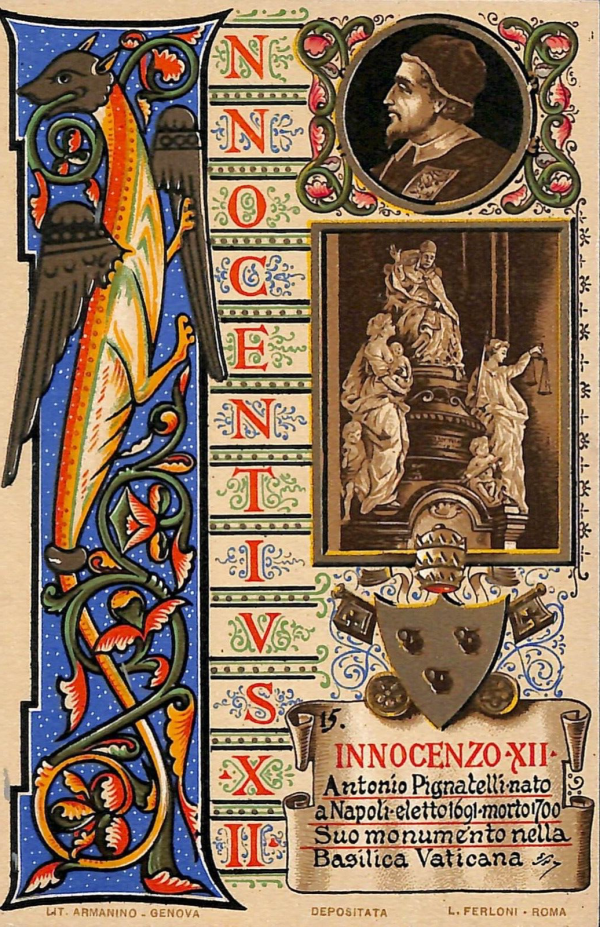 NNOCENTIVS XII
15.
INNOCENZO·XII·
Antonio Pignatelli·nato
a Napoli·eletto1691·morto1700
Suo monumento nella
Basilica Vaticana
LIT. ARMANINO - GENOVA
DEPOSITATA
L. FERLONI - ROMA